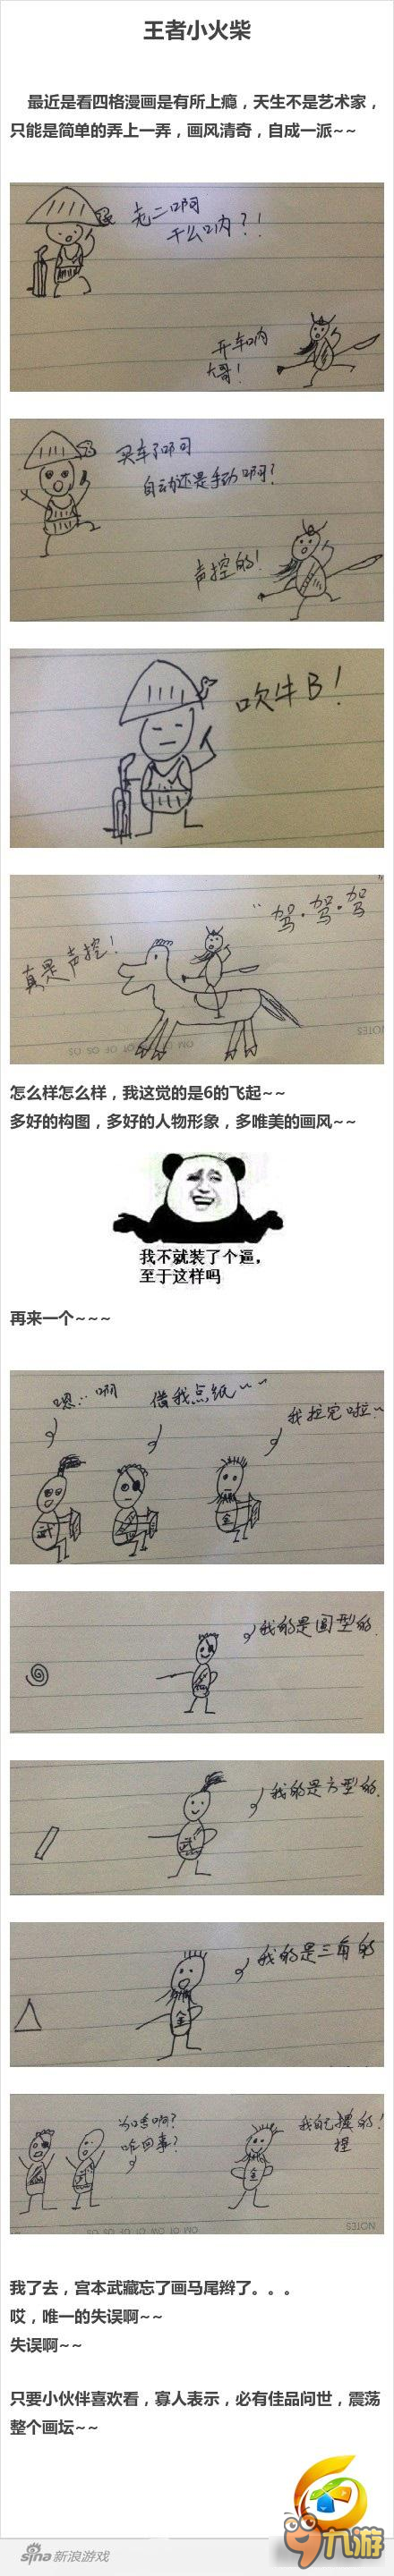 王者小火柴
最近是看四格漫画是有所上瘾，天生不是艺术家，
只能是简单的弄上一弄，画风清奇，自成一派~~
老二啊
干么呐?!
开车呐
大哥!
买车了啊
自动还是手动啊?
声控的!
吹牛B!
真是声控!
"驾·驾·驾"
NOTES
怎么样怎么样，我这觉的是6的飞起~~
多好的构图，多好的人物形象，多唯美的画风~~
我不就装了个逼，
至于这样吗
再来一个~~~
嗯:·啊
借我点纸~~
我拉完啦~
武
金
我的是圆型的.
我的是方型的.
武
我的是三角的
金
为啥啊?
咋回事?
我自己捏的!
捏
武
金
NOTES
我了去，宫本武藏忘了画马尾辫了。。。
哎，唯一的失误啊~~
失误啊~~
只要小伙伴喜欢看，寡人表示，必有佳品问世，震荡
整个画坛~~
sina 新浪游戏
九游